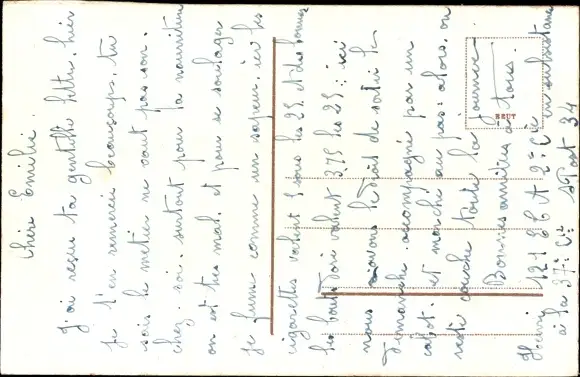 Chère Emilie.
J'ai reçue ta gentille lettre, hier
je t'en remercie beaucoup, tu
sais le metier ne vaut pas son
chez-soi. surtout pour la nourriture
on est tres mal, et pour se soulager
je fume comme un sapeur, ici les
cigarettes valent 1 sous les 25 et des bonnes
les bouts dorés valent 3,75 les 25; ici
nous avons le droit de sortir le
Dimanche accompagné par un
cabot. et marche au pas: alors. on
reste couché toute la journée
Bonnes amitiés à tous.
Henri 121 2e Cie en subsistance
à la 37e Cie Sp. 34
BRUT